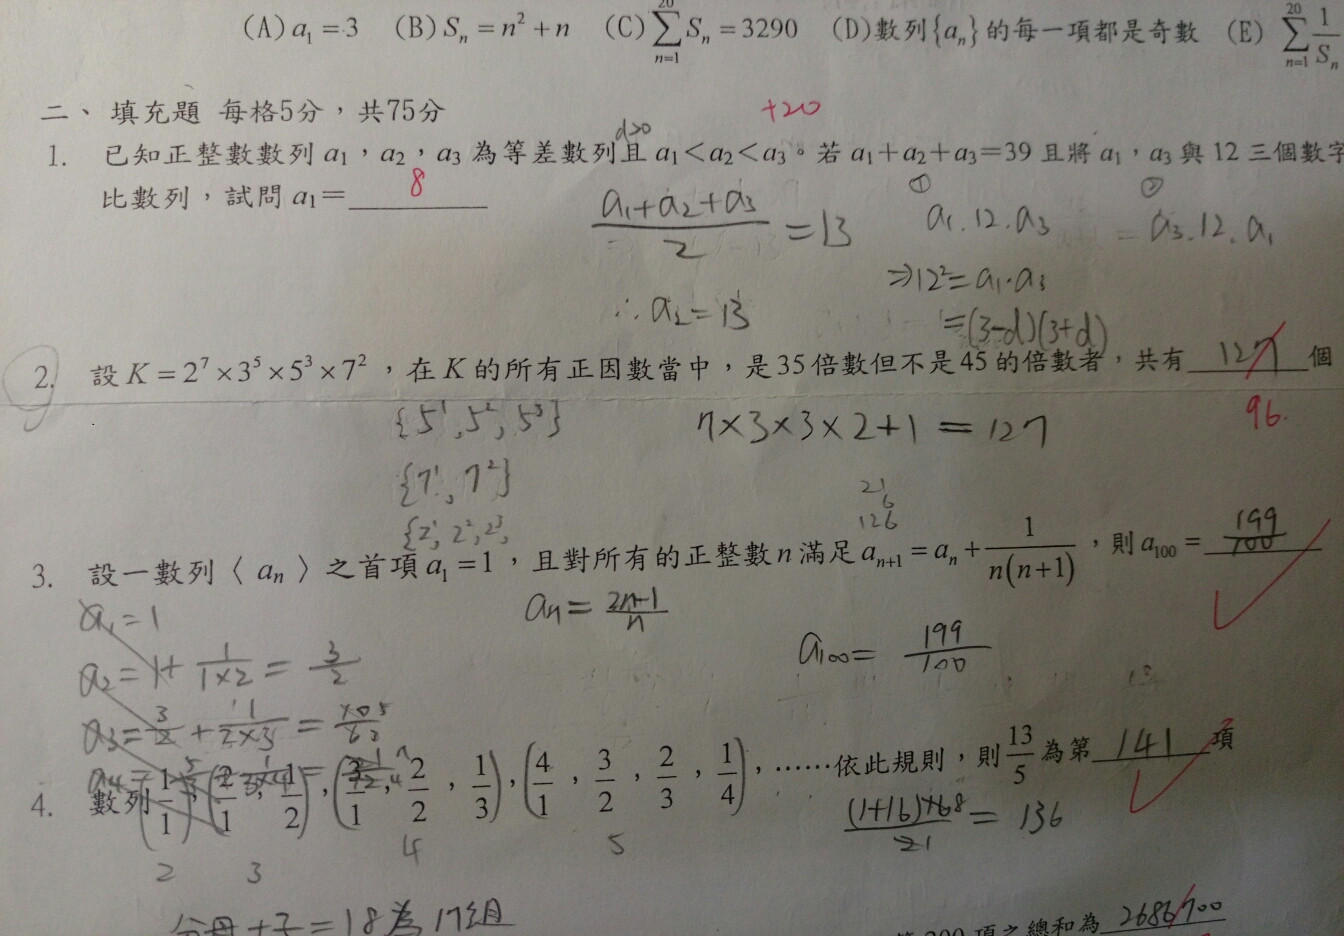 (A) a₁ = 3 (B) Sₙ = n² + n (C) ∑ₙ₌₁²⁰ Sₙ = 3290 (D) 數列{aₙ}的每一項都是奇數 (E) ∑ₙ₌₁²⁰ 1/Sₙ
二、填充題 每格5分，共75分
+20
d>0
1. 已知正整數數列 a₁，a₂，a₃ 為等差數列且 a₁<a₂<a₃。若 a₁+a₂+a₃=39 且將 a₁，a₃ 與 12 三個數字
比數列，試問 a₁= 8
(a₁+a₂+a₃)/2 = 13
① a₁.12.a₃
② a₃.12.a₁
⇒12²=a₁·a₃
=(3-d)(3+d)
∴a₂=13
2. 設 K = 2⁷×3⁵×5³×7²，在 K 的所有正因數當中，是 35 倍數但不是 45 的倍數者，共有 127 個
96.
{5¹,5²,5³}
7×3×3×2+1 = 127
{7¹,7²}
{2¹,2²,2³,
21
6
126
3. 設一數列〈aₙ〉之首項 a₁=1，且對所有的正整數 n 滿足 aₙ₊₁=aₙ+1/(n(n+1))，則 a₁₀₀= 199/100
a₁=1
aₙ= (2n-1)/n
a₁₀₀= 199/100
a₂=1+ 1/(1×2) = 3/2
a₃= 3/2 + 1/(2×3) =
4. 數列(1/1),(2/1,1/2),(3/1,2/2,1/3),(4/1,3/2,2/3,1/4),……依此規則，則13/5為第 141 項
2 3 4 5
(1+16)×168/21 = 136
分母+子=18為17組
項之總和為 2686700